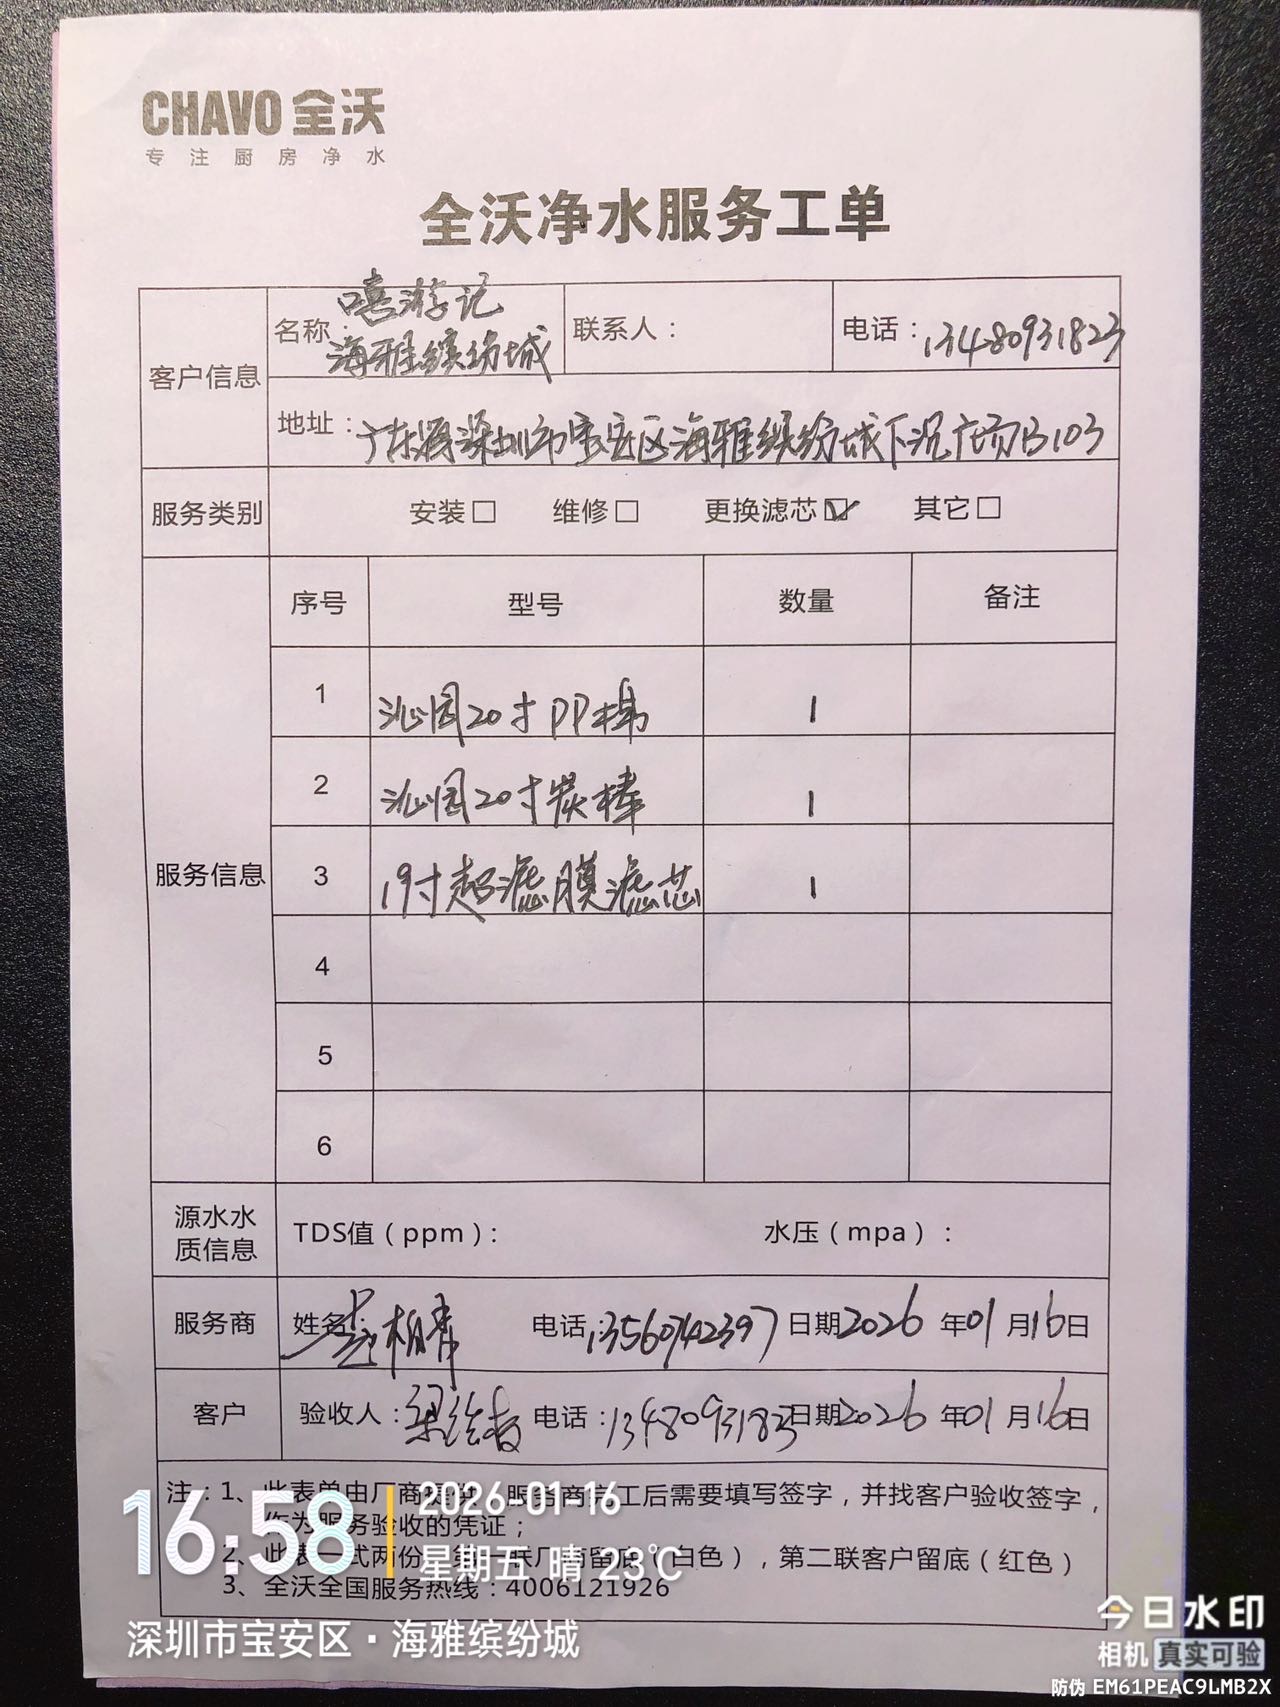 CHAVO 全沃
专注厨房净水
全沃净水服务工单
客户信息
名称：嘻游记 海雅缤纷城
联系人：
电话：13480931823
地址：广东源深圳市宝安区海雅缤纷城下沉广场B103
服务类别 安装□ 维修□ 更换滤芯☑ 其它□
服务信息
序号 型号 数量 备注
1 沁园20寸PP棉 1
2 沁园20寸炭棒 1
3 19寸超滤膜滤芯 1
4
5
6
源水水质信息 TDS值（ppm）： 水压（mpa）：
服务商 姓名： 电话：13560742397 日期2026年01月16日
客户 验收人：梁 电话：1348093183 日期2026年01月16日
注：1、此表单由厂商提供，服务商完工后需要填写签字，并找客户验收签字，
作为服务验收的凭证；
2、此表一式两份，第一联厂商留底（白色），第二联客户留底（红色）
3、全沃全国服务热线：4006121926
16:58
2026-01-16
星期五 晴 23℃
深圳市宝安区·海雅缤纷城
今日水印
相机 真实可验
防伪 EM61PEAC9LMB2X